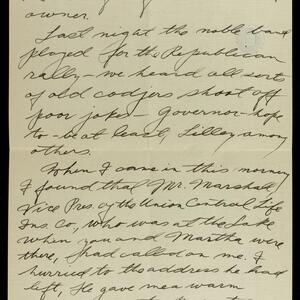 owner.
Last night the noble band
played for the Republican
rally — we heard all sorts
of old codjers shoot off
poor jokes — Governor-hope
to-be at least, Lilley, among
others.
When I came in this morning
I found that Mr. Marshall,
Vice Pres. of the Union Central Life
Ins. Co., who was at the Lake
when you and Martha were
there, had called on me. I
hurried to the address he had
left, He gave me a warm